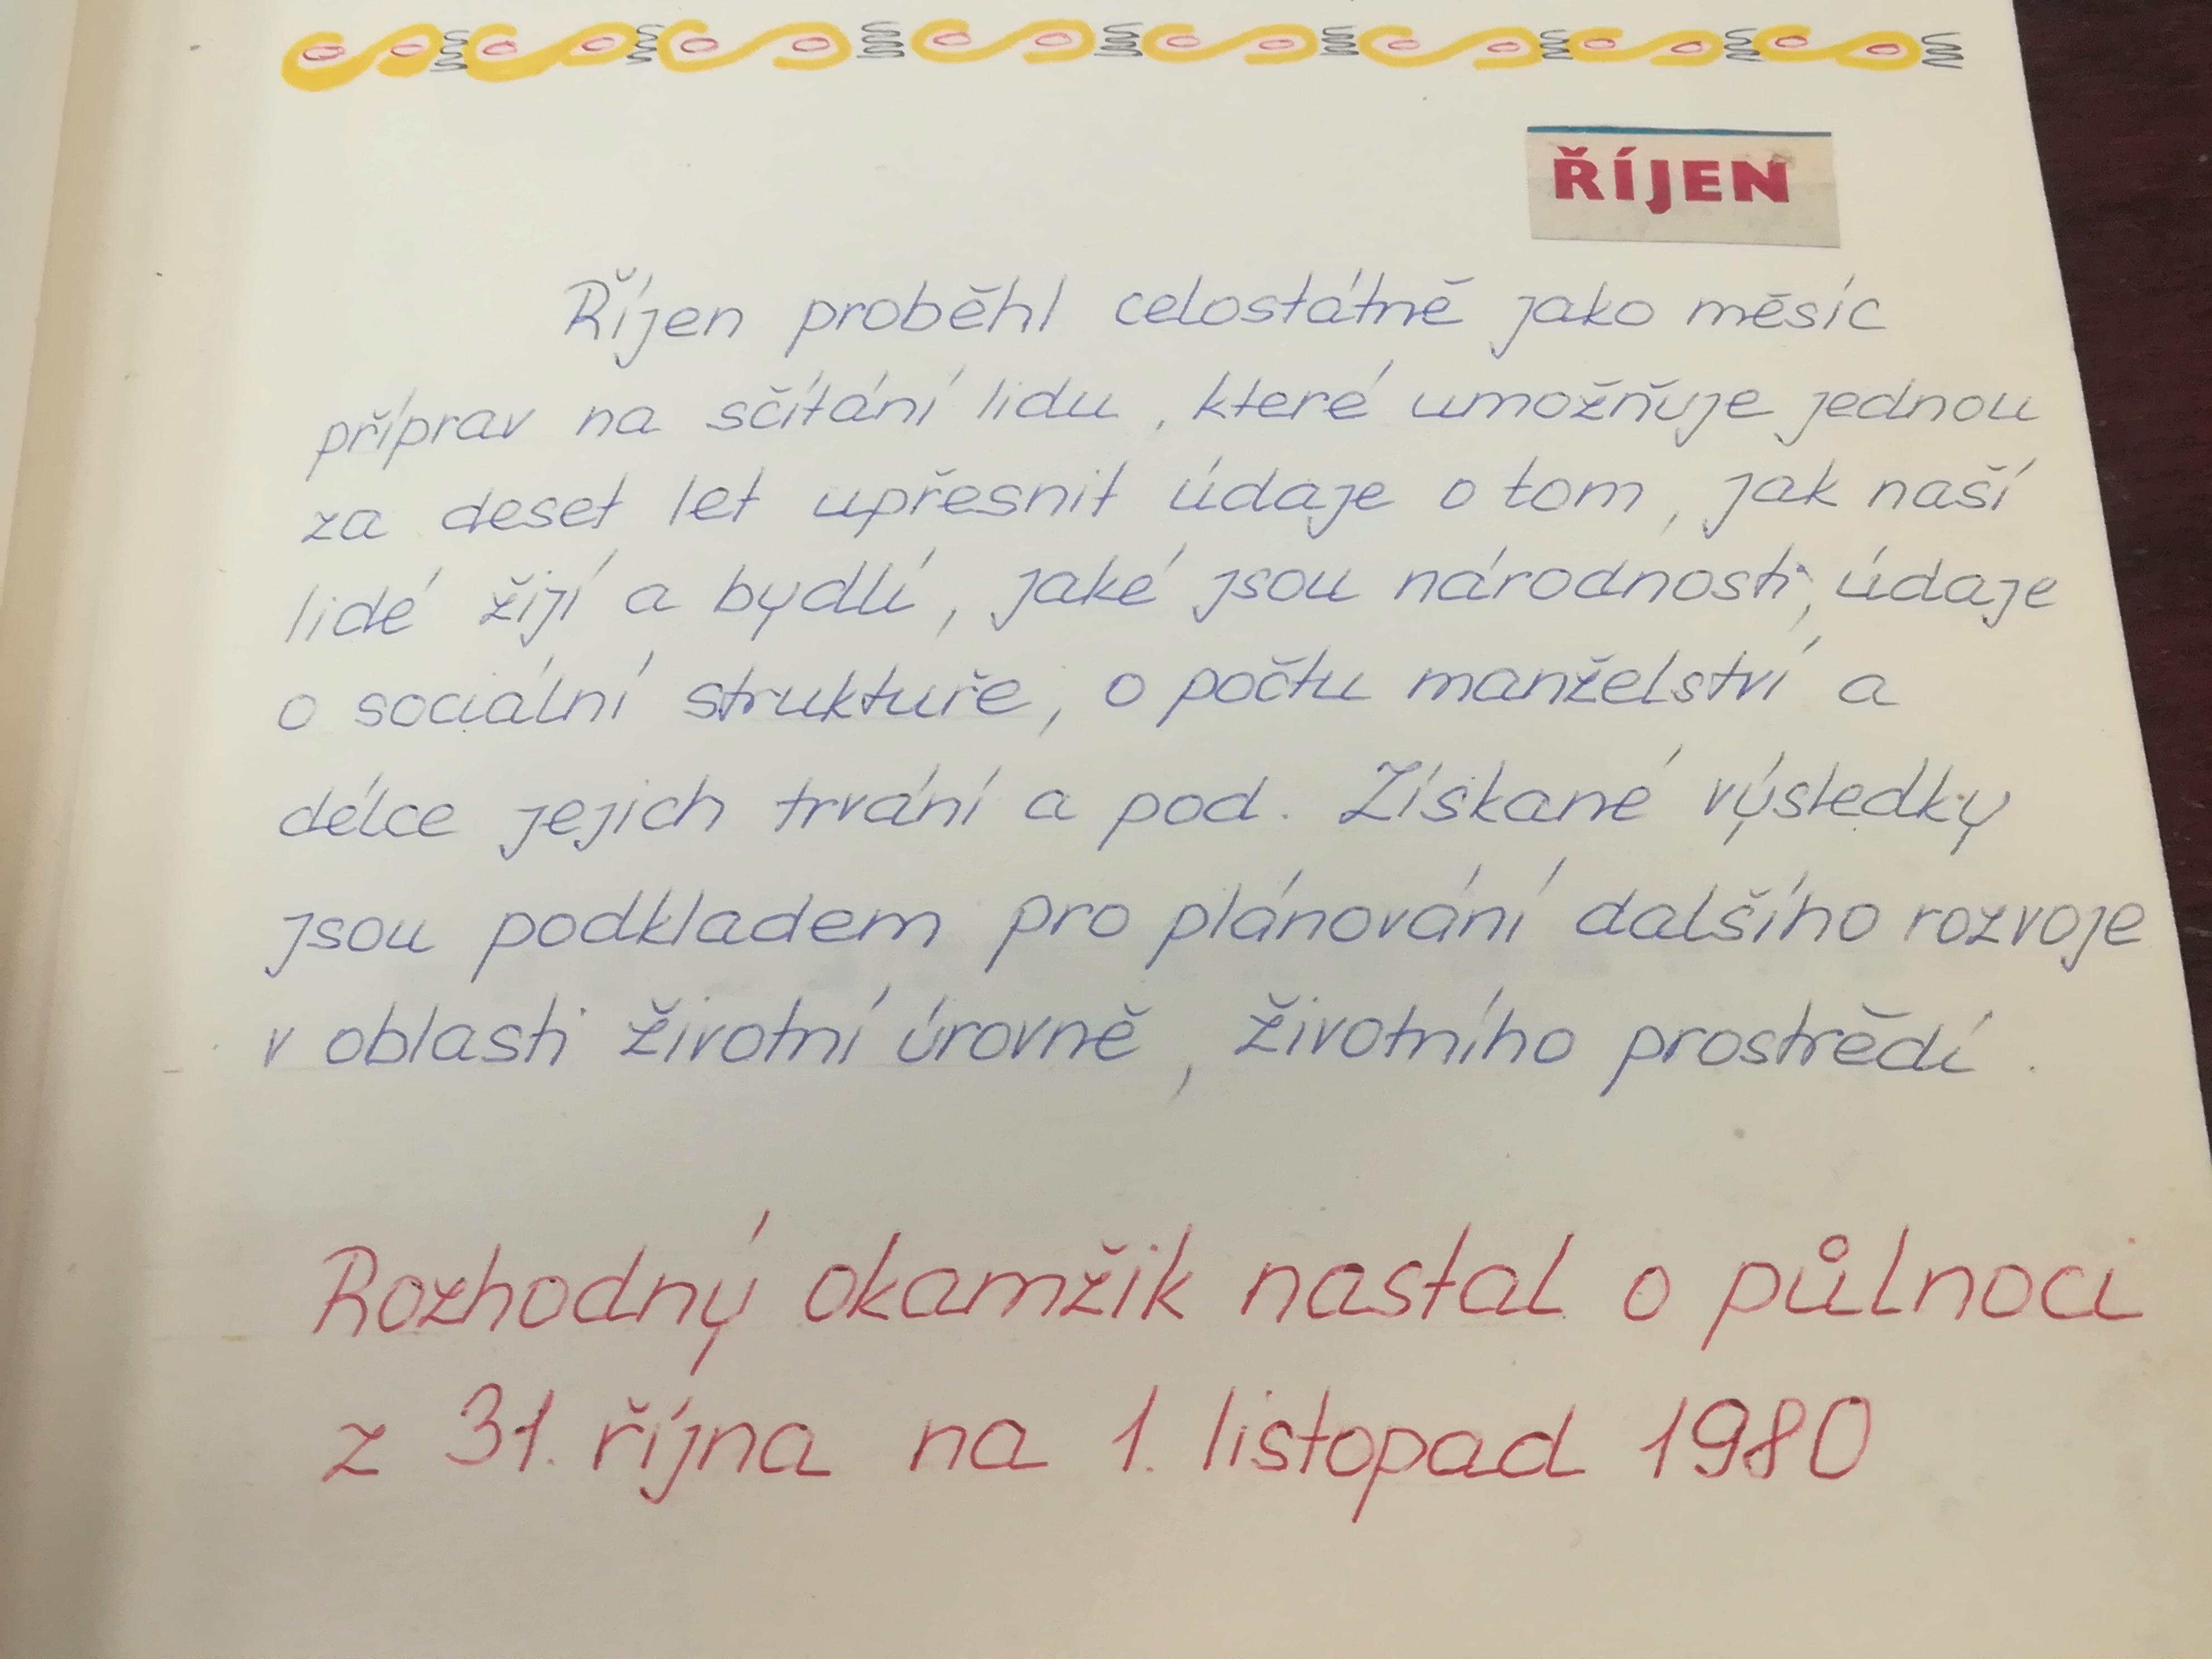 ŘÍJEN
Říjen proběhl celostátně jako měsíc
příprav na sčítání lidu, které umožňuje jednou
za deset let upřesnit údaje o tom, jak naší
lidé žijí a bydlí, jaké jsou národnosti, údaje
o sociální struktuře, o počtu manželství a
délce jejich trvání a pod. Získané výsledky
jsou podkladem pro plánování dalšího rozvoje
v oblasti životní úrovně, životního prostrědí.
Rozhodný okamžik nastal o půlnoci
z 31. října na 1. listopad 1980